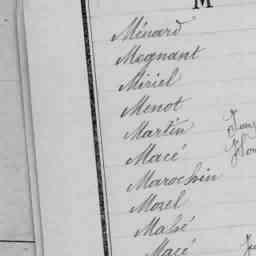 M
Ménard
Megnant
Miriel
Menot
Martin
Macé
Marochin
Morel
Mahé
Macé